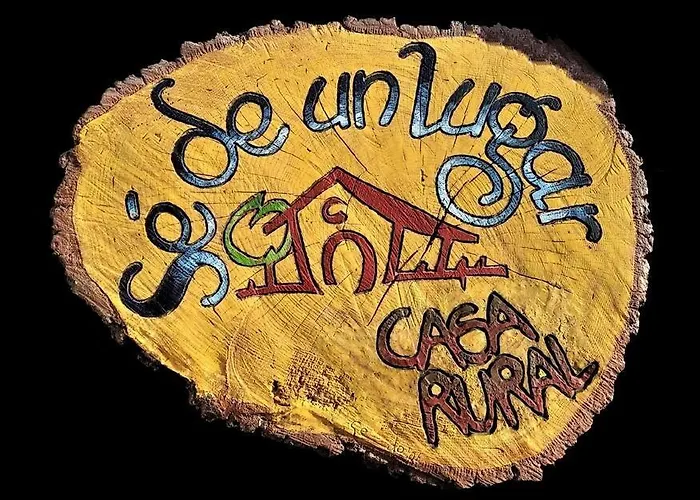 Sé de un lugar
CASA
RURAL